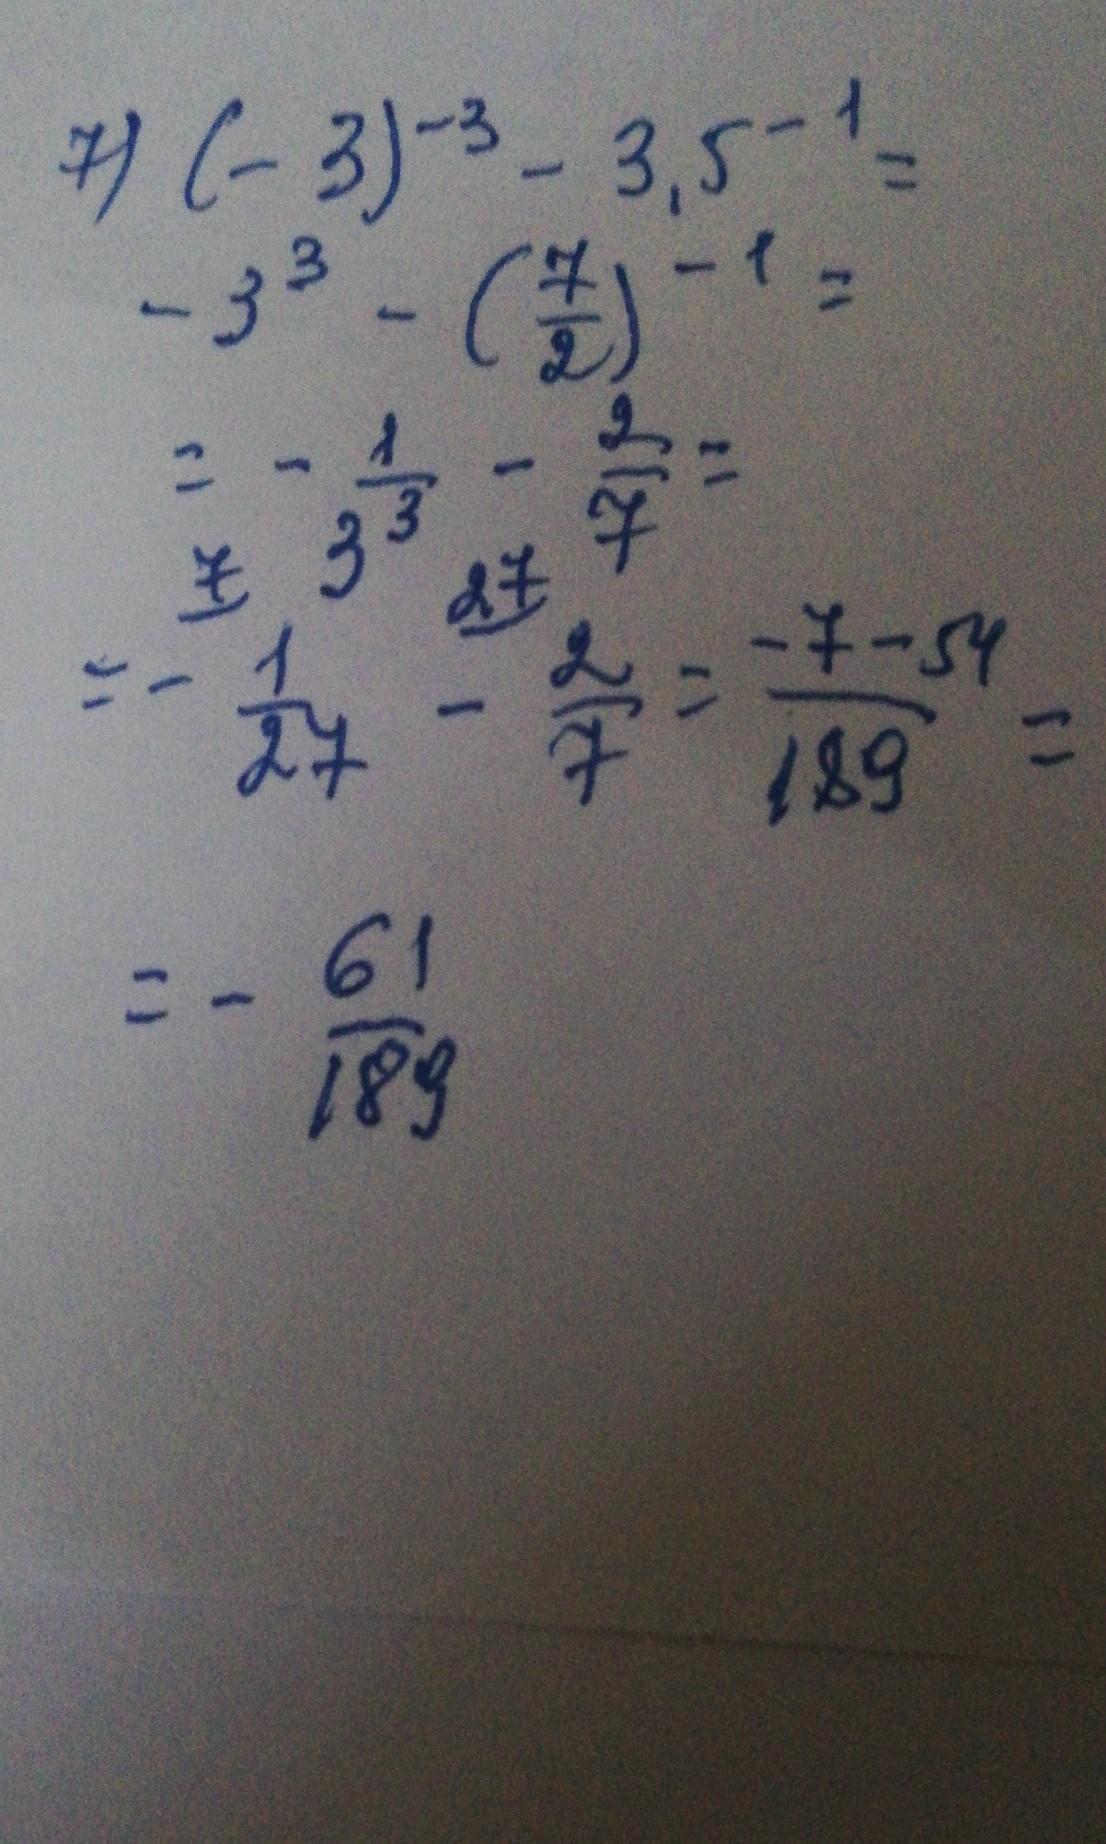 7) (-3)⁻³ - 3,5⁻¹ =
-3³ - (7/2)⁻¹ =
= - 1/3³ - 2/7 =
7 27
= - 1/27 - 2/7 = (-7-54)/189 =
= - 61/189